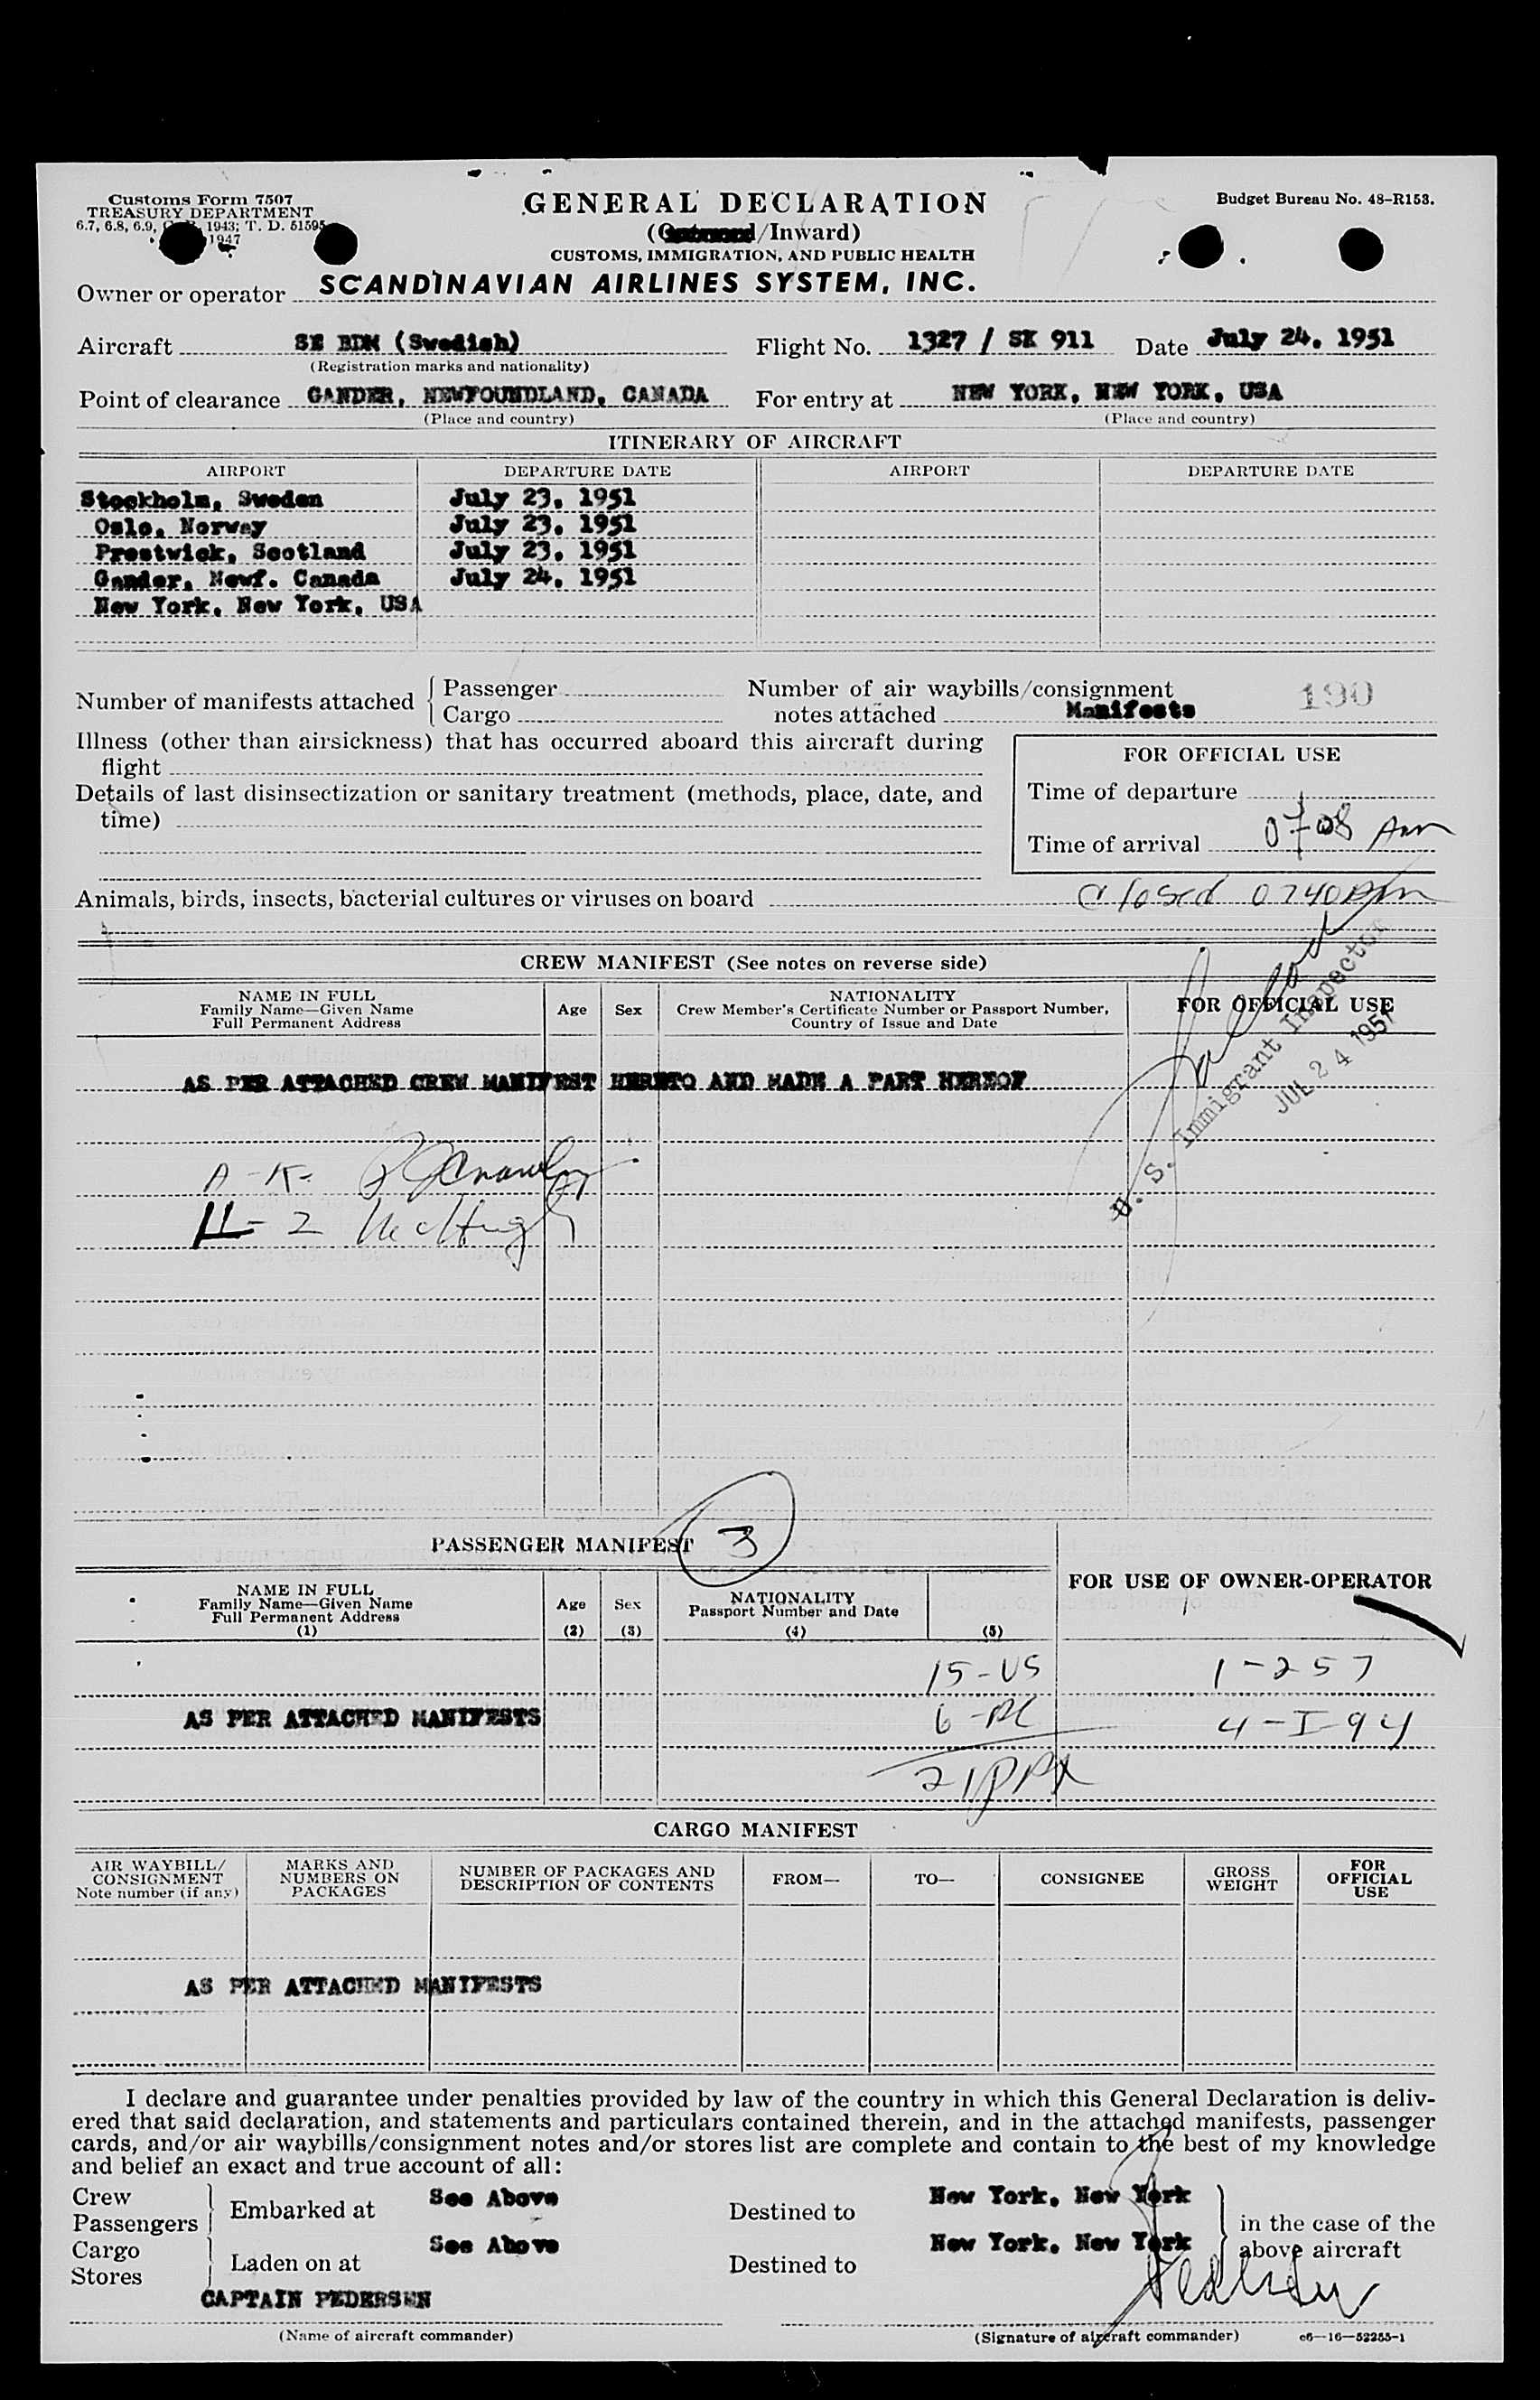 Customs Form 7507
TREASURY DEPARTMENT
6.7, 6.8, 6.9, 1943; T. D. 51595
1947
GENERAL DECLARATION
(/Inward)
CUSTOMS, IMMIGRATION, AND PUBLIC HEALTH
Budget Bureau No. 48-R153.
Owner or operator SCANDINAVIAN AIRLINES SYSTEM, INC.
Aircraft SE BDM (Swedish) Flight No. 1327 / SK 911 Date July 24, 1951
(Registration marks and nationality)
Point of clearance GANDER, NEWFOUNDLAND, CANADA For entry at NEW YORK, NEW YORK, USA
(Place and country) (Place and country)
ITINERARY OF AIRCRAFT
AIRPORT DEPARTURE DATE AIRPORT DEPARTURE DATE
Stockholm, Sweden July 23, 1951
Oslo, Norway July 23, 1951
Prestwick, Scotland July 23, 1951
Gander, Newf. Canada July 24, 1951
New York, New York, USA
Number of manifests attached { Passenger Number of air waybills/consignment 190
Cargo notes attached Manifests
Illness (other than airsickness) that has occurred aboard this aircraft during
flight
Details of last disinsectization or sanitary treatment (methods, place, date, and
time)
FOR OFFICIAL USE
Time of departure
Time of arrival 0708 Am
Animals, birds, insects, bacterial cultures or viruses on board closed 0740 Am
CREW MANIFEST (See notes on reverse side)
NAME IN FULL
Family Name—Given Name
Full Permanent Address
Age Sex
NATIONALITY
Crew Member's Certificate Number or Passport Number,
Country of Issue and Date
FOR OFFICIAL USE
U. S. Immigrant Inspector
JUL 24 1951
AS PER ATTACHED CREW MANIFEST HERETO AND MADE A PART HEREOF
A-K-
H-2 McHugh
PASSENGER MANIFEST 3
NAME IN FULL
Family Name—Given Name
Full Permanent Address
(1)
Age
(2)
Sex
(3)
NATIONALITY
Passport Number and Date
(4) (5)
FOR USE OF OWNER-OPERATOR
15-US 1-257
AS PER ATTACHED MANIFESTS 6- 4-I-94
21
CARGO MANIFEST
AIR WAYBILL/
CONSIGNMENT
Note number (if any)
MARKS AND
NUMBERS ON
PACKAGES
NUMBER OF PACKAGES AND
DESCRIPTION OF CONTENTS
FROM— TO— CONSIGNEE
GROSS
WEIGHT
FOR
OFFICIAL
USE
AS PER ATTACHED MANIFESTS
I declare and guarantee under penalties provided by law of the country in which this General Declaration is deliv-
ered that said declaration, and statements and particulars contained therein, and in the attached manifests, passenger
cards, and/or air waybills/consignment notes and/or stores list are complete and contain to the best of my knowledge
and belief an exact and true account of all:
Crew
Passengers } Embarked at See Above Destined to New York, New York
Cargo
Stores } Laden on at See Above Destined to New York, New York
in the case of the
above aircraft
CAPTAIN PEDERSEN
(Name of aircraft commander) (Signature of aircraft commander) c6—16—52255-1